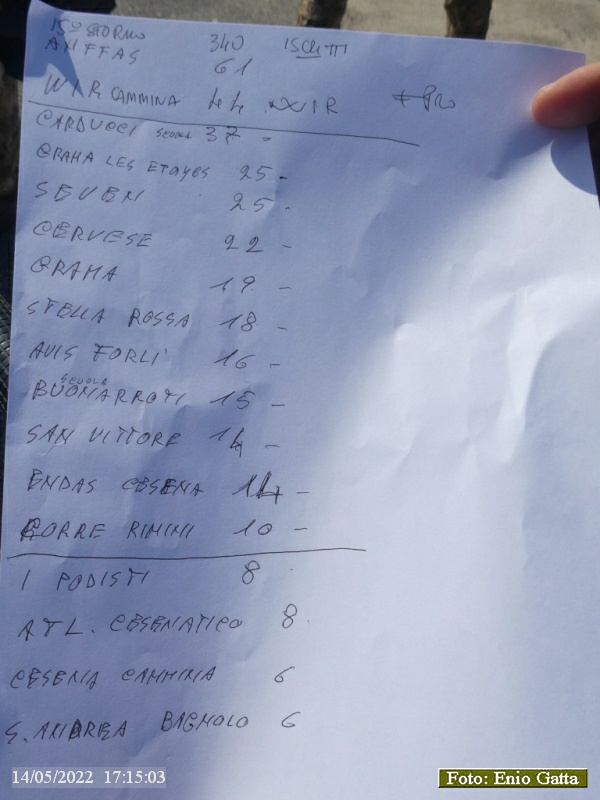 15° STORMO 340 ISCRITTI
ANFFAS 61
W I R CAMMINA 44 WIR + PRO
CARDUCCI SCUOLA 37 -
GRAMA LES ETOYES 25 -
SEVEN 25 -
CERVESE 22 -
GRAMA 19 -
STELLA ROSSA 18 -
AVIS FORLI' 16 -
SCUOLA
BUONARROTI 15 -
SAN VITTORE 14 -
ENDAS CESENA 14 -
CORRE RIMINI 10 -
I PODISTI 8
ATL. CESENATICO 8
CESENA CAMMINA 6
S. ANDREA BAGNOLO 6
14/05/2022 17:15:03
Foto: Enio Gatta